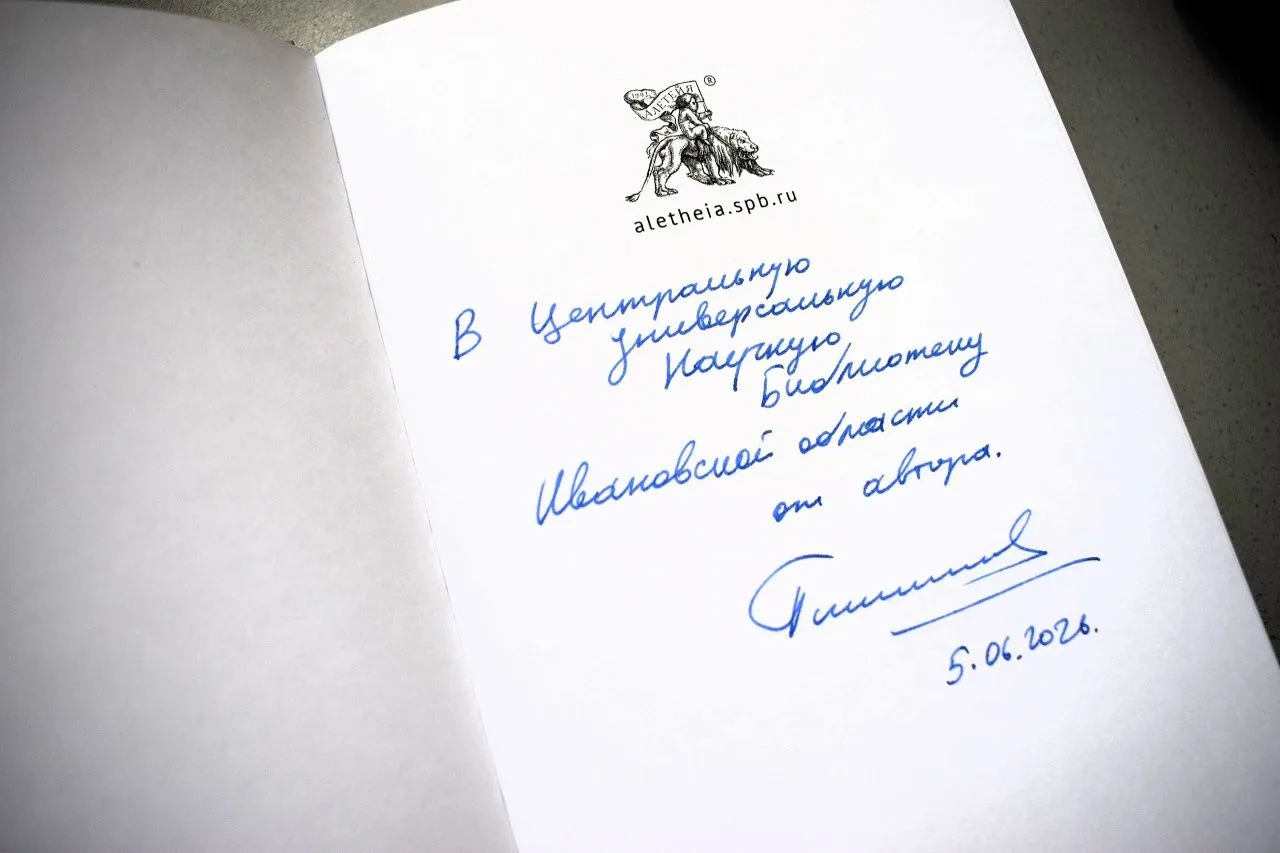 1992
АЛЕТЕЙЯ
®
aletheia.spb.ru
В Центральную
универсальную
Научную
Библиотеку
Ивановской области
от автора.
5.06.2026.